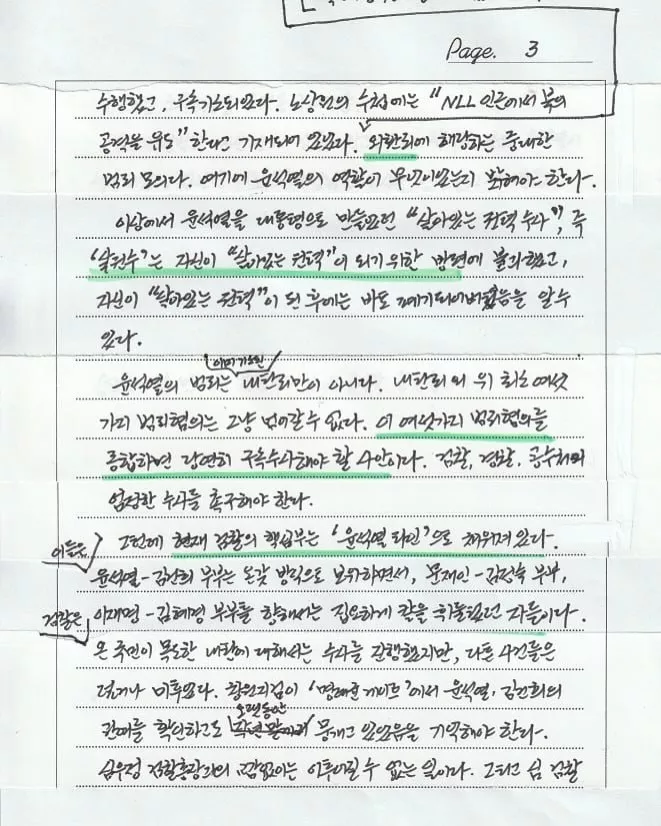 Page. 3
수행했고, 구속기소되었다. 노상원의 수첩에는 "NLL 인근에서 북의
공격을 유도" 한다고 기재되어 있었다. 외환죄에 해당하는 중대한
범죄 모의다. 여기에 윤석열의 역할이 무엇이었는지 밝혀야 한다.
이상에서 윤석열을 대통령으로 만들었던 "살아있는 권력 수사", 즉
'살권수'는 자신이 "살아있는 권력"이 되기 위한 방편에 불과했고,
자신이 "살아있는 권력"이 된 후에는 바로 폐기되어버렸음을 알 수
있다.
이미 기소된
윤석열의 범죄는 내란죄만이 아니다. 내란죄 외 위 최소 여섯
가지 범죄혐의는 그냥 넘어갈 수 없다. 이 여섯가지 범죄혐의를
종합하면 당연히 구속수사해야 할 사안이다. 검찰, 경찰, 공수처의
엄정한 수사를 촉구해야 한다.
그런데 현재 검찰의 핵심부는 '윤석열 라인'으로 채워져 있다.
이들은
윤석열-김건희 부부는 온갖 방식으로 보위하면서, 문재인-김정숙 부부,
이재명-김혜경 부부를 향해서는 집요하게 칼을 휘둘렀던 자들이다.
검찰은
온 국민이 목도한 내란에 대해서는 수사를 진행했지만, 다른 사건들은
덮거나 미루었다. 창원지검이 '명태균 게이트'에서 윤석열, 김건희의
오랫동안
관여를 확인하고도 작년 말까지 뭉개고 있었음을 기억해야 한다.
심우정 검찰총장과의 교감없이는 이루어질 수 없는 일이다. 그리고 심 검찰